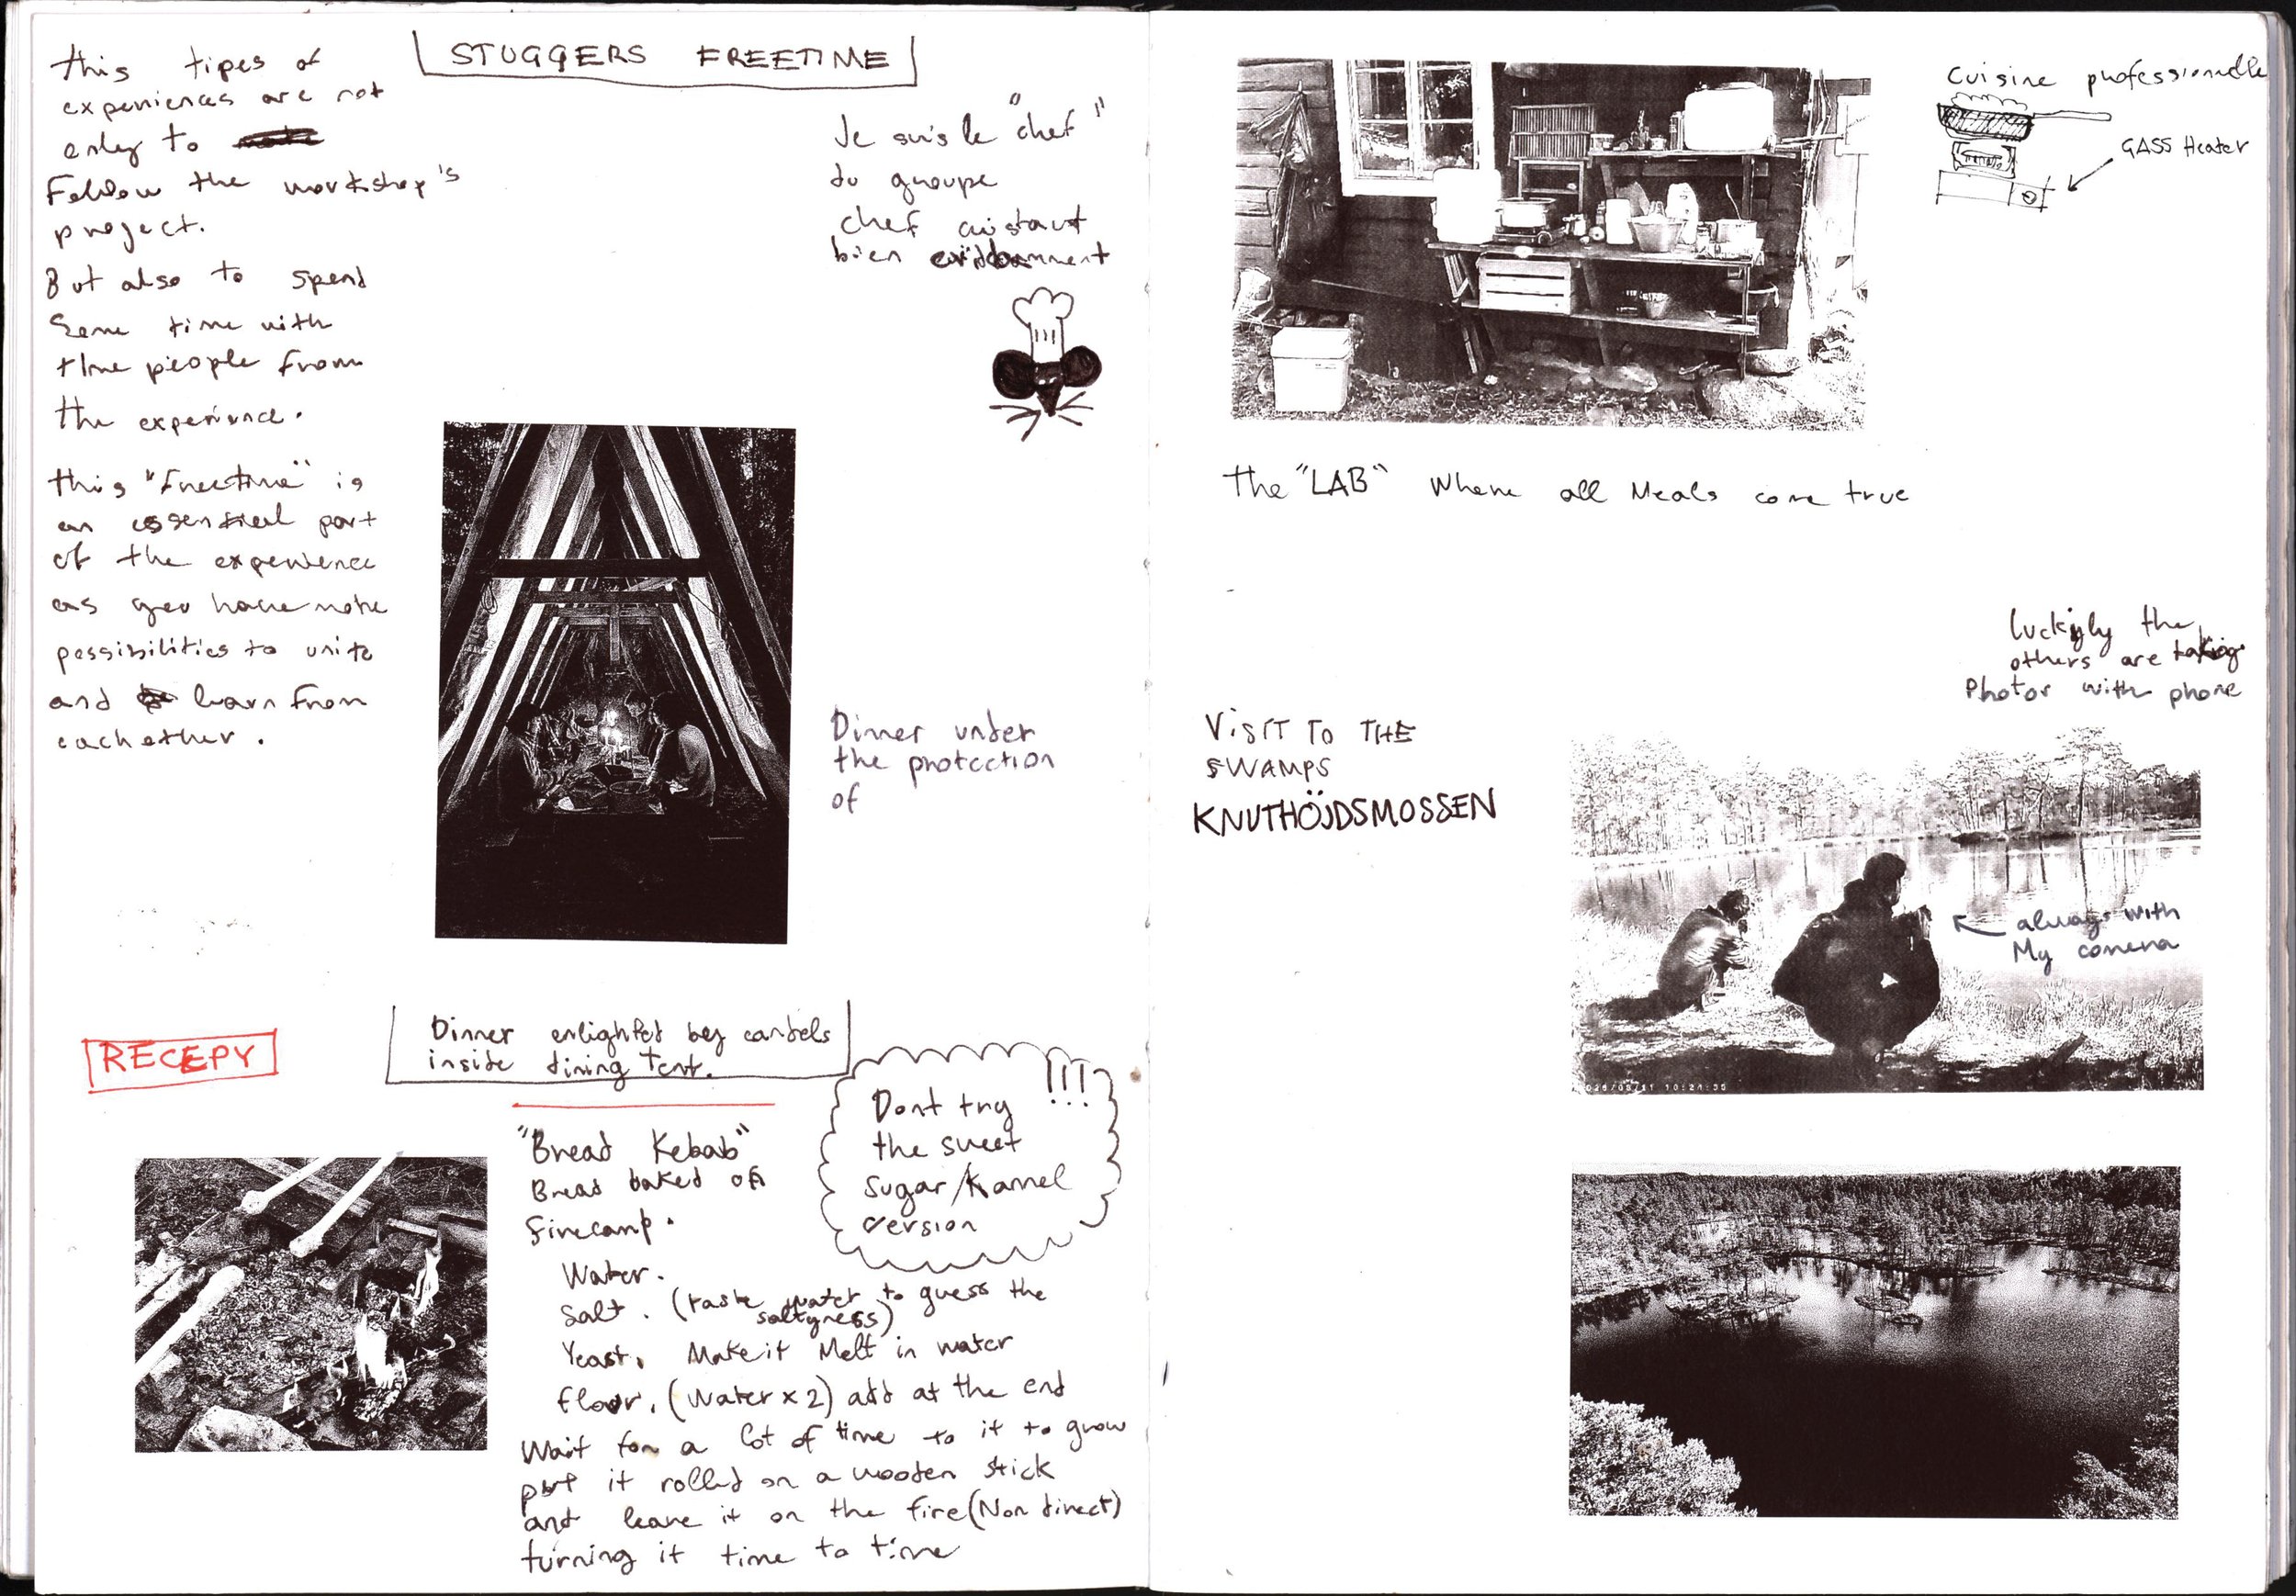 STUGGERS FREETIME
this tipes of
experiences are not
only to
Follow the workshop's
project.
But also to spend
Some time with
the people from
the experience.
this "Freetime" is
an essential part
of the experience
as you have more
possibilities to unite
and learn from
eachother.
Je suis le "chef"
du groupe
chef cuistaut
bien evidemment
Dinner under
the protection
of
Dinner enlighted by candels
inside dining tent.
RECEPY
"Bread Kebab"
Bread baked on
firecamp.
Water.
Salt. (taste water to guess the
saltyness)
Yeast. Make it Melt in water
floor. (Water x 2) add at the end
Wait for a lot of time to it to grow
put it rolled on a wooden stick
and leave it on the fire (Non direct)
turning it time to time
Dont try !!!
the sweet
sugar/Kannel
version
Cuisine professionnelle
GASS Heater
The "LAB" Where all Meals come true
Luckyly the
others are taking
Photos with phone
VISIT TO THE
SWAMPS
KNUTHÖJDSMOSSEN
always with
My camera
10:24:35